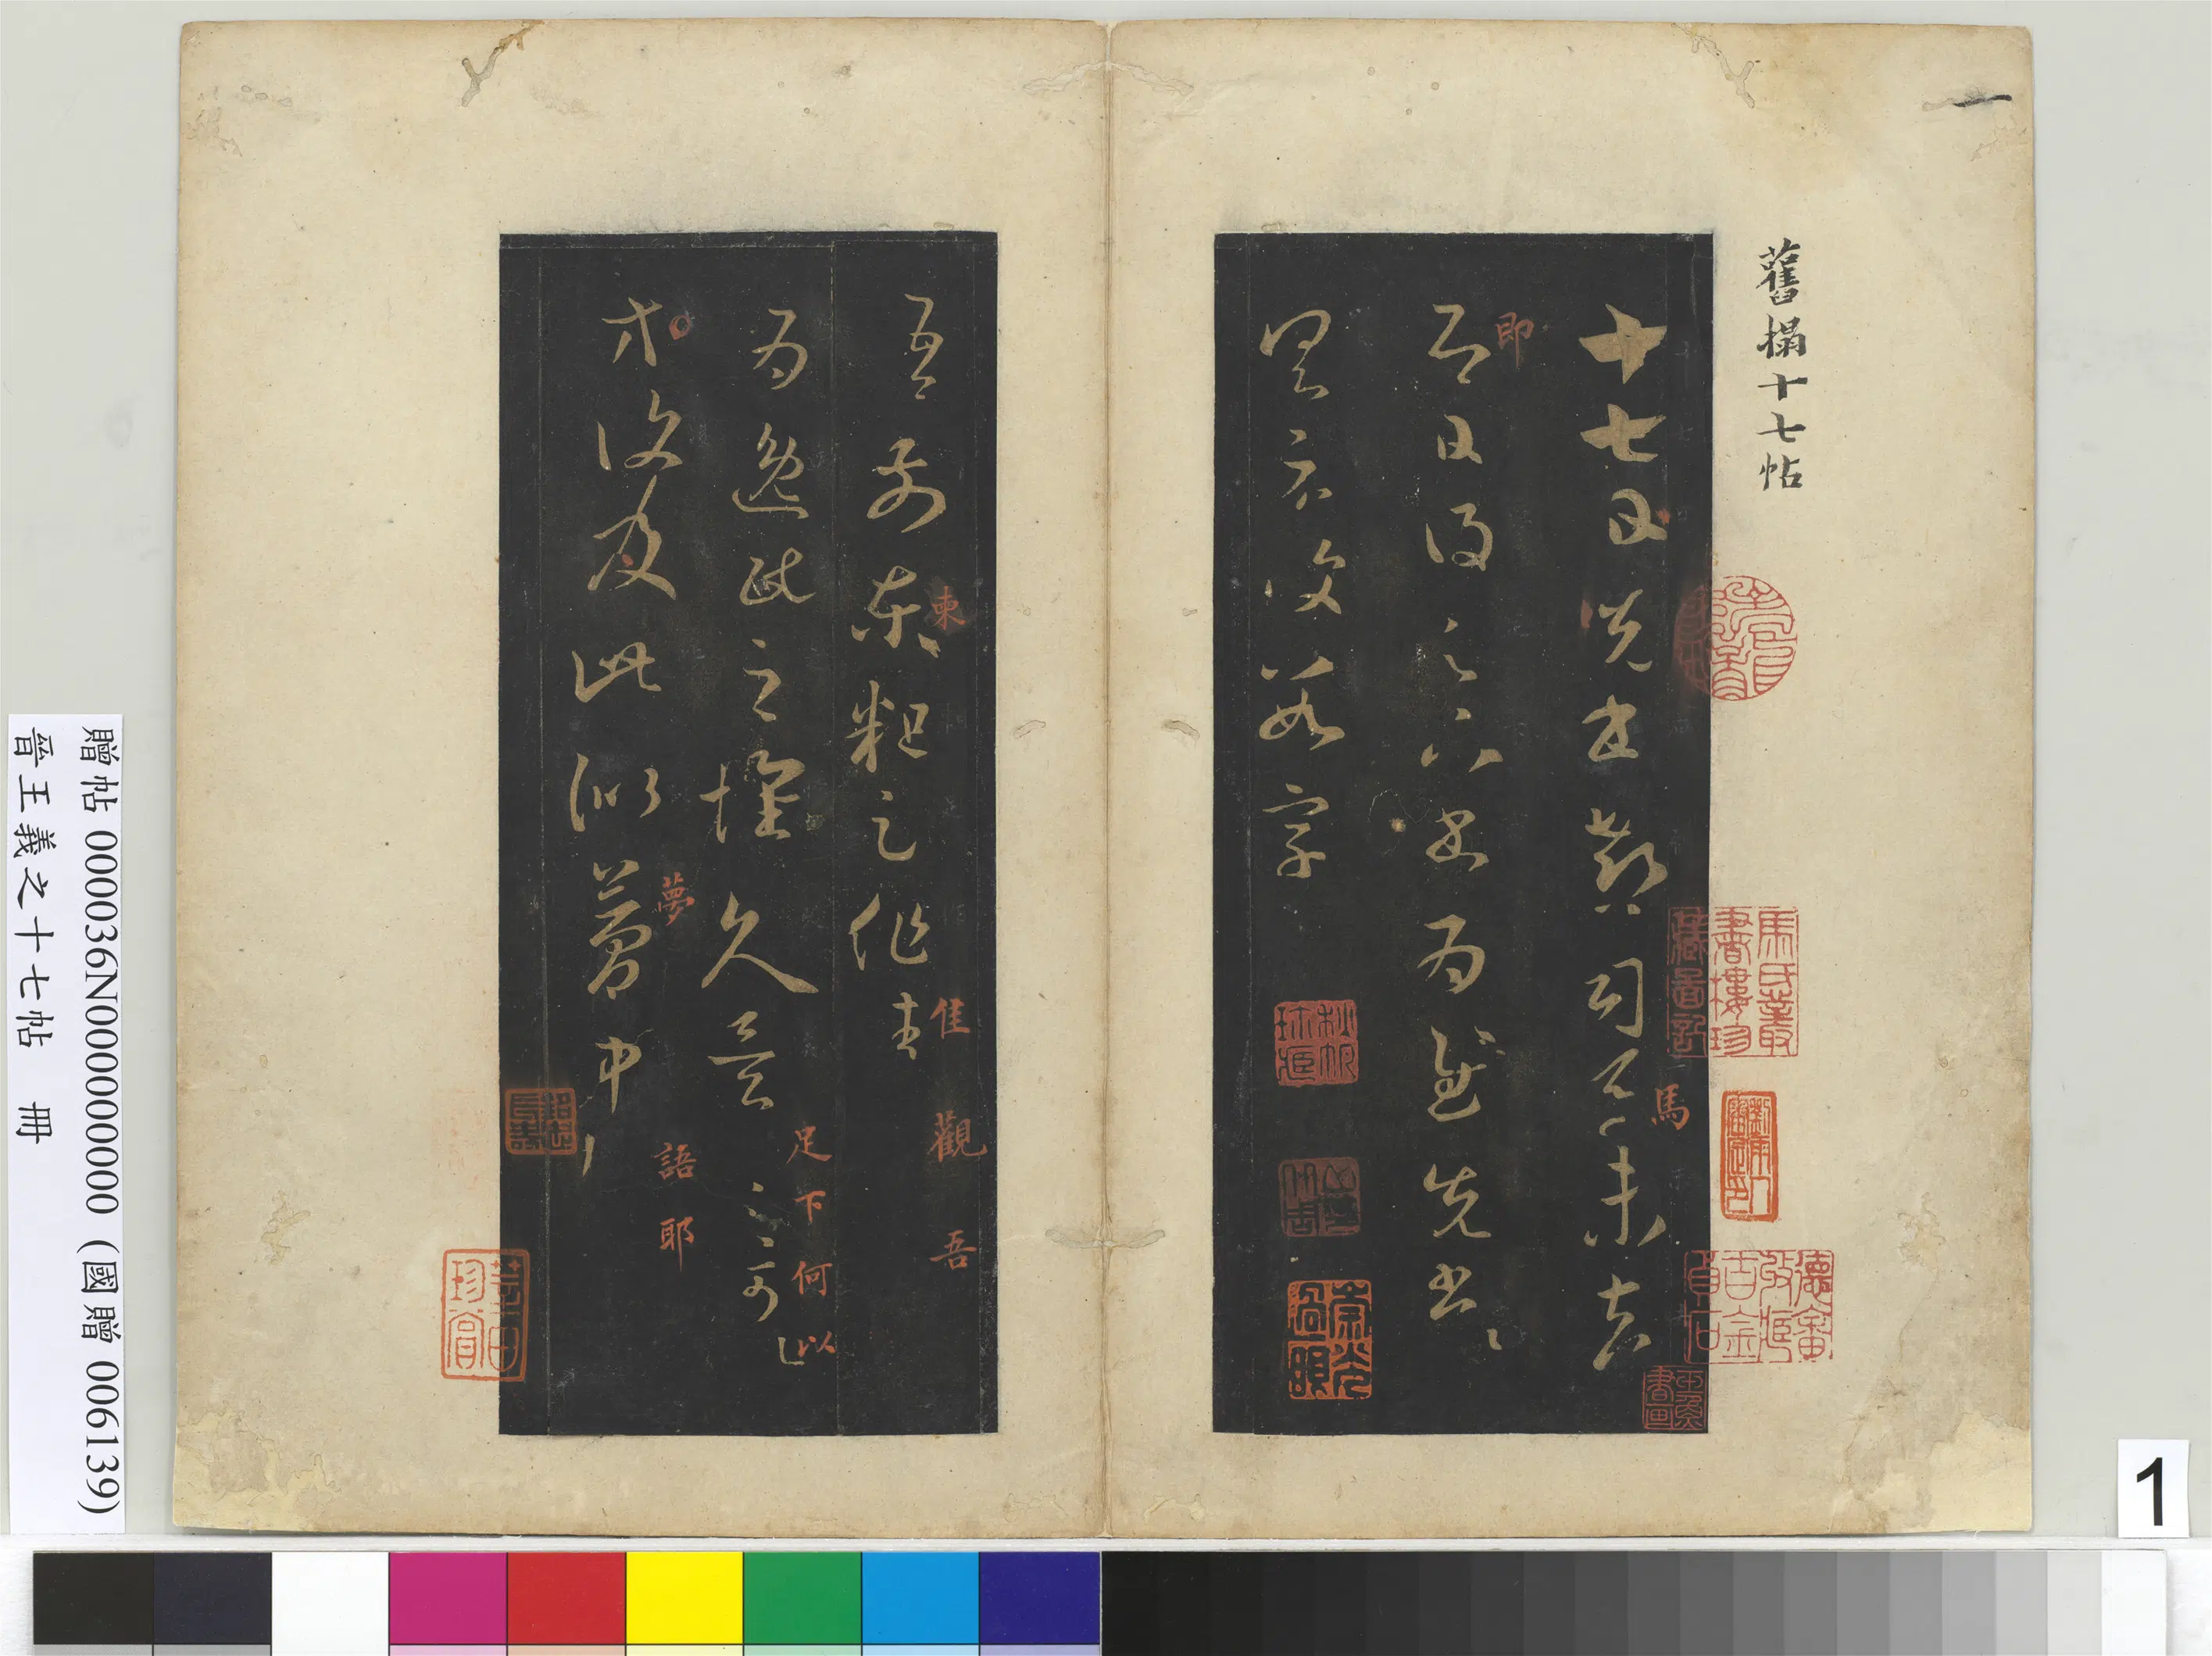 一
舊搨十七帖
十七日先書郗司馬未去
馬
即日得足下書為慰先書以
即
具示復數字
吾前東粗足作佳
東
佳觀吾
為逸民之懷久矣足下何以
足下何以
等復及此似夢中
夢
語耶
馬氏叢書樓珍藏圖記
贈帖 000036N000000000 (國贈 006139)
晉王羲之十七帖 冊
1